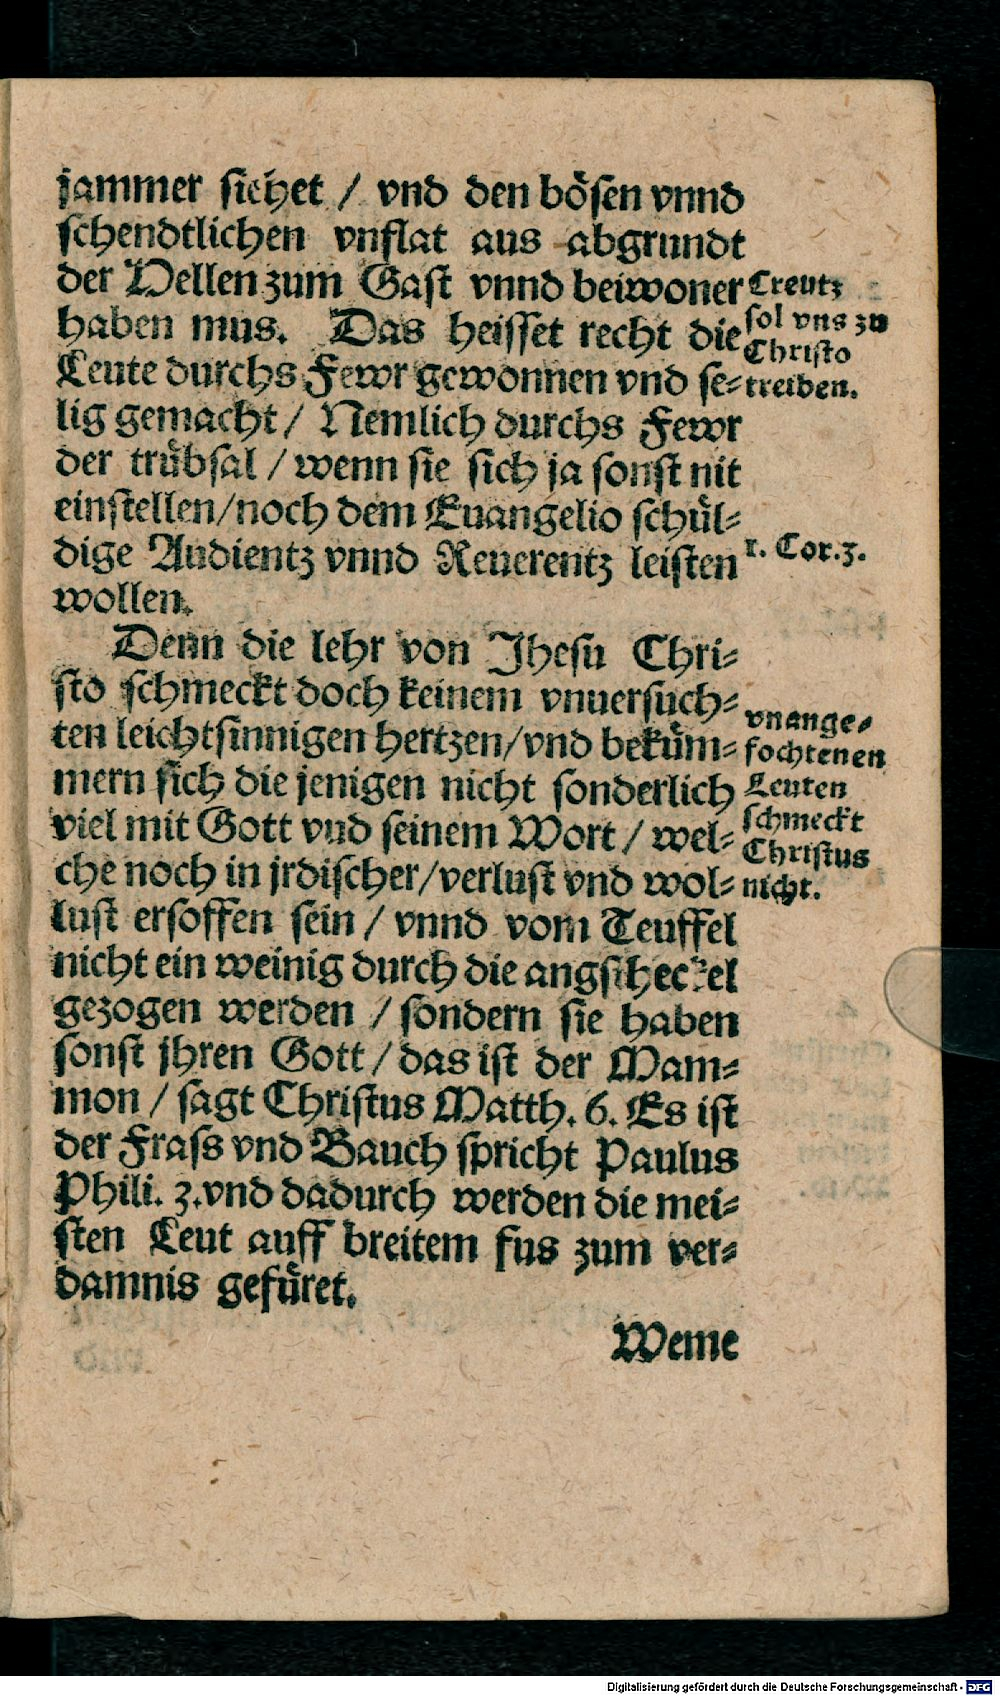 jammer siehet / vnd den bösen vnnd
schendtlichen vnflat aus abgrundt
der Hellen zum Gast vnnd beiwoner
haben mus. Das heisset recht die
Leute durchs Fewr gewonnen vnd se⸗
lig gemacht / Nemlich durchs Fewr
der trübsal / wenn sie sich ja sonst nit
einstellen/noch dem Euangelio schül⸗
dige Audientz vnnd Reuerentz leisten
wollen.
Creutz
sol vns zu
Christo
treiben.
1. Cor. 3.
Denn die lehr von Jhesu Chri⸗
sto schmeckt doch keinem vnuersuch⸗
ten leichtsinnigen hertzen/vnd beküm⸗
mern sich die jenigen nicht sonderlich
viel mit Gott vud seinem Wort / wel⸗
che noch in jrdischer/verlust vnd wol⸗
lust ersoffen sein / vnnd vom Teuffel
nicht ein weinig durch die angstheckel
gezogen werden / sondern sie haben
sonst jhren Gott / das ist der Mam⸗
mon / sagt Christus Matth. 6. Es ist
der Frass vnd Bauch spricht Paulus
Phili. 3. vnd dadurch werden die mei⸗
sten Leut auff breitem fus zum ver⸗
damnis gefüret.
vnange⸗
fochtenen
Leuten
schmeckt
Christus
nicht.
Weme
Digitalisierung gefördert durch die Deutsche Forschungsgemeinschaft - DFG